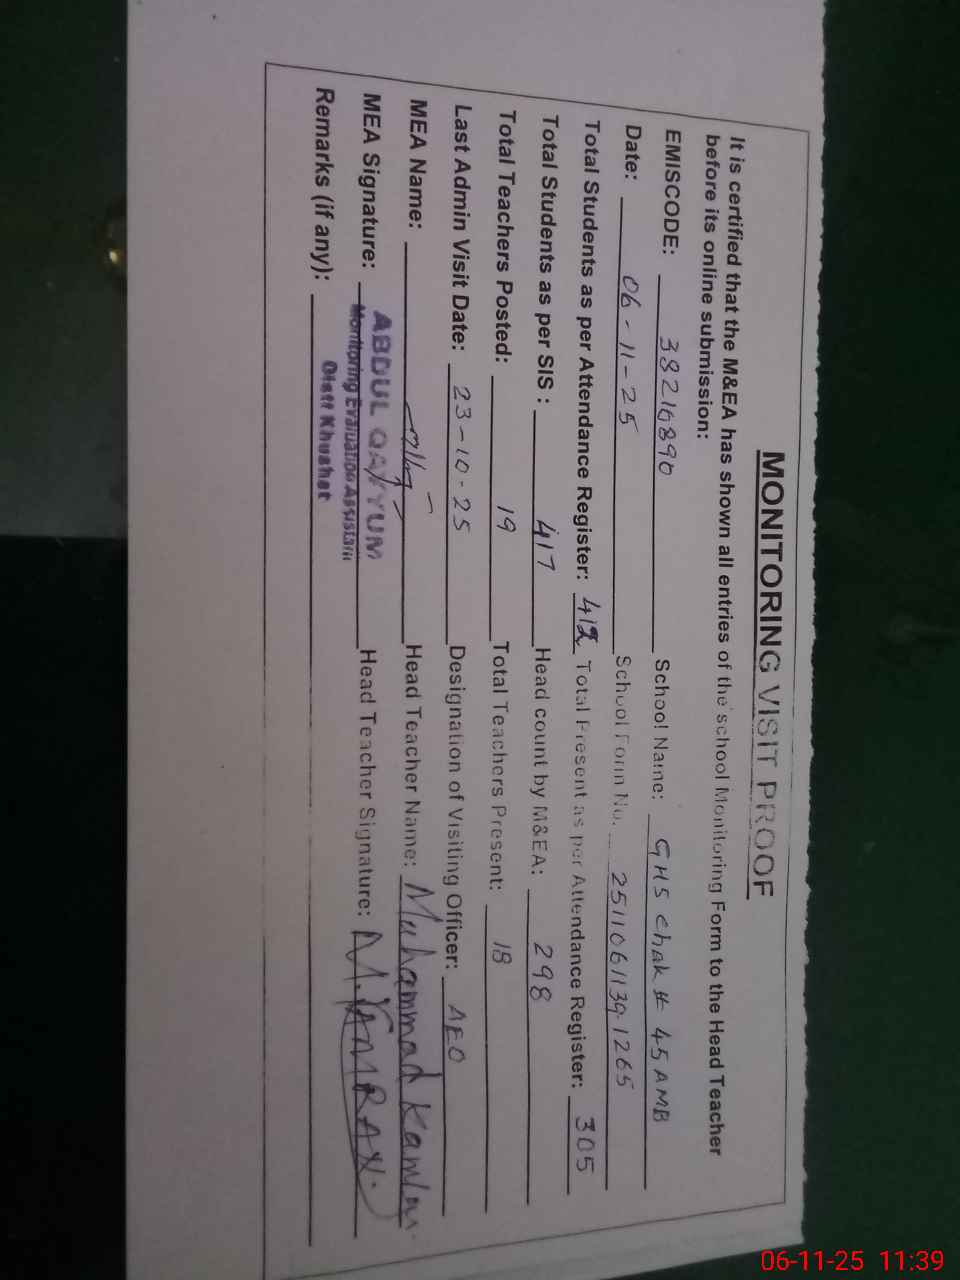 MONITORING VISIT PROOF
It is certified that the M&EA has shown all entries of the school Monitoring Form to the Head Teacher
before its online submission:
EMISCODE: 38210890 School Name: GHS Chak # 45 AMB
Date: 06-11-25 School Form No. 2511061139.1265
Total Students as per Attendance Register: 412 Total Present as per Attendance Register: 305
Total Students as per SIS : 417 Head count by M&EA: 298
Total Teachers Posted: 19 Total Teachers Present: 18
Last Admin Visit Date: 23-10-25 Designation of Visiting Officer: AEO
MEA Name: Head Teacher Name: Muhammad Kamran
MEA Signature: ABDUL QAYYUM Head Teacher Signature: M.KAMRAN.
Monitoring Evaluation Assistant
Remarks (if any): Distt Khushat
06-11-25 11:39